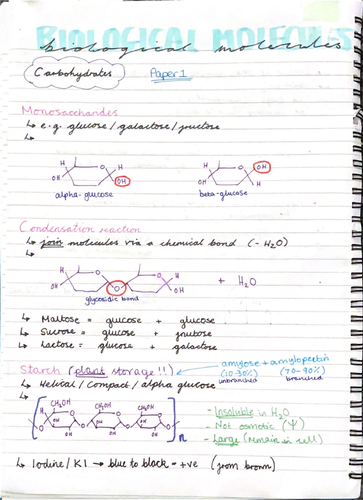 BIOLOGICAL MOLECULES
biological molecules
Carbohydrates Paper 1
Monosaccharides
↳ e.g. glucose / galactose / fructose
↳
H O H
OH OH
H O OH
OH H
alpha-glucose beta-glucose
Condensation reaction
↳ join molecules via a chemical bond (- H₂O)
↳
H O O H
OH O OH + H₂O
glycosidic bond
↳ Maltose = glucose + glucose
↳ Sucrose = glucose + fructose
↳ Lactose = glucose + galactose
Starch (plant storage!!) amylose + amylopectin
(10-30%) (70-90%)
unbranched branched
↳ Helical / compact / alpha glucose
↳
CH₂OH CH₂OH CH₂OH
O O O
H OH OH OH
O O O
OH OH OH n
- Insoluble in H₂O
- Not osmotic (Ψ)
- Large (remain in cell)
↳ Iodine / KI → blue to black = +ve (from brown)